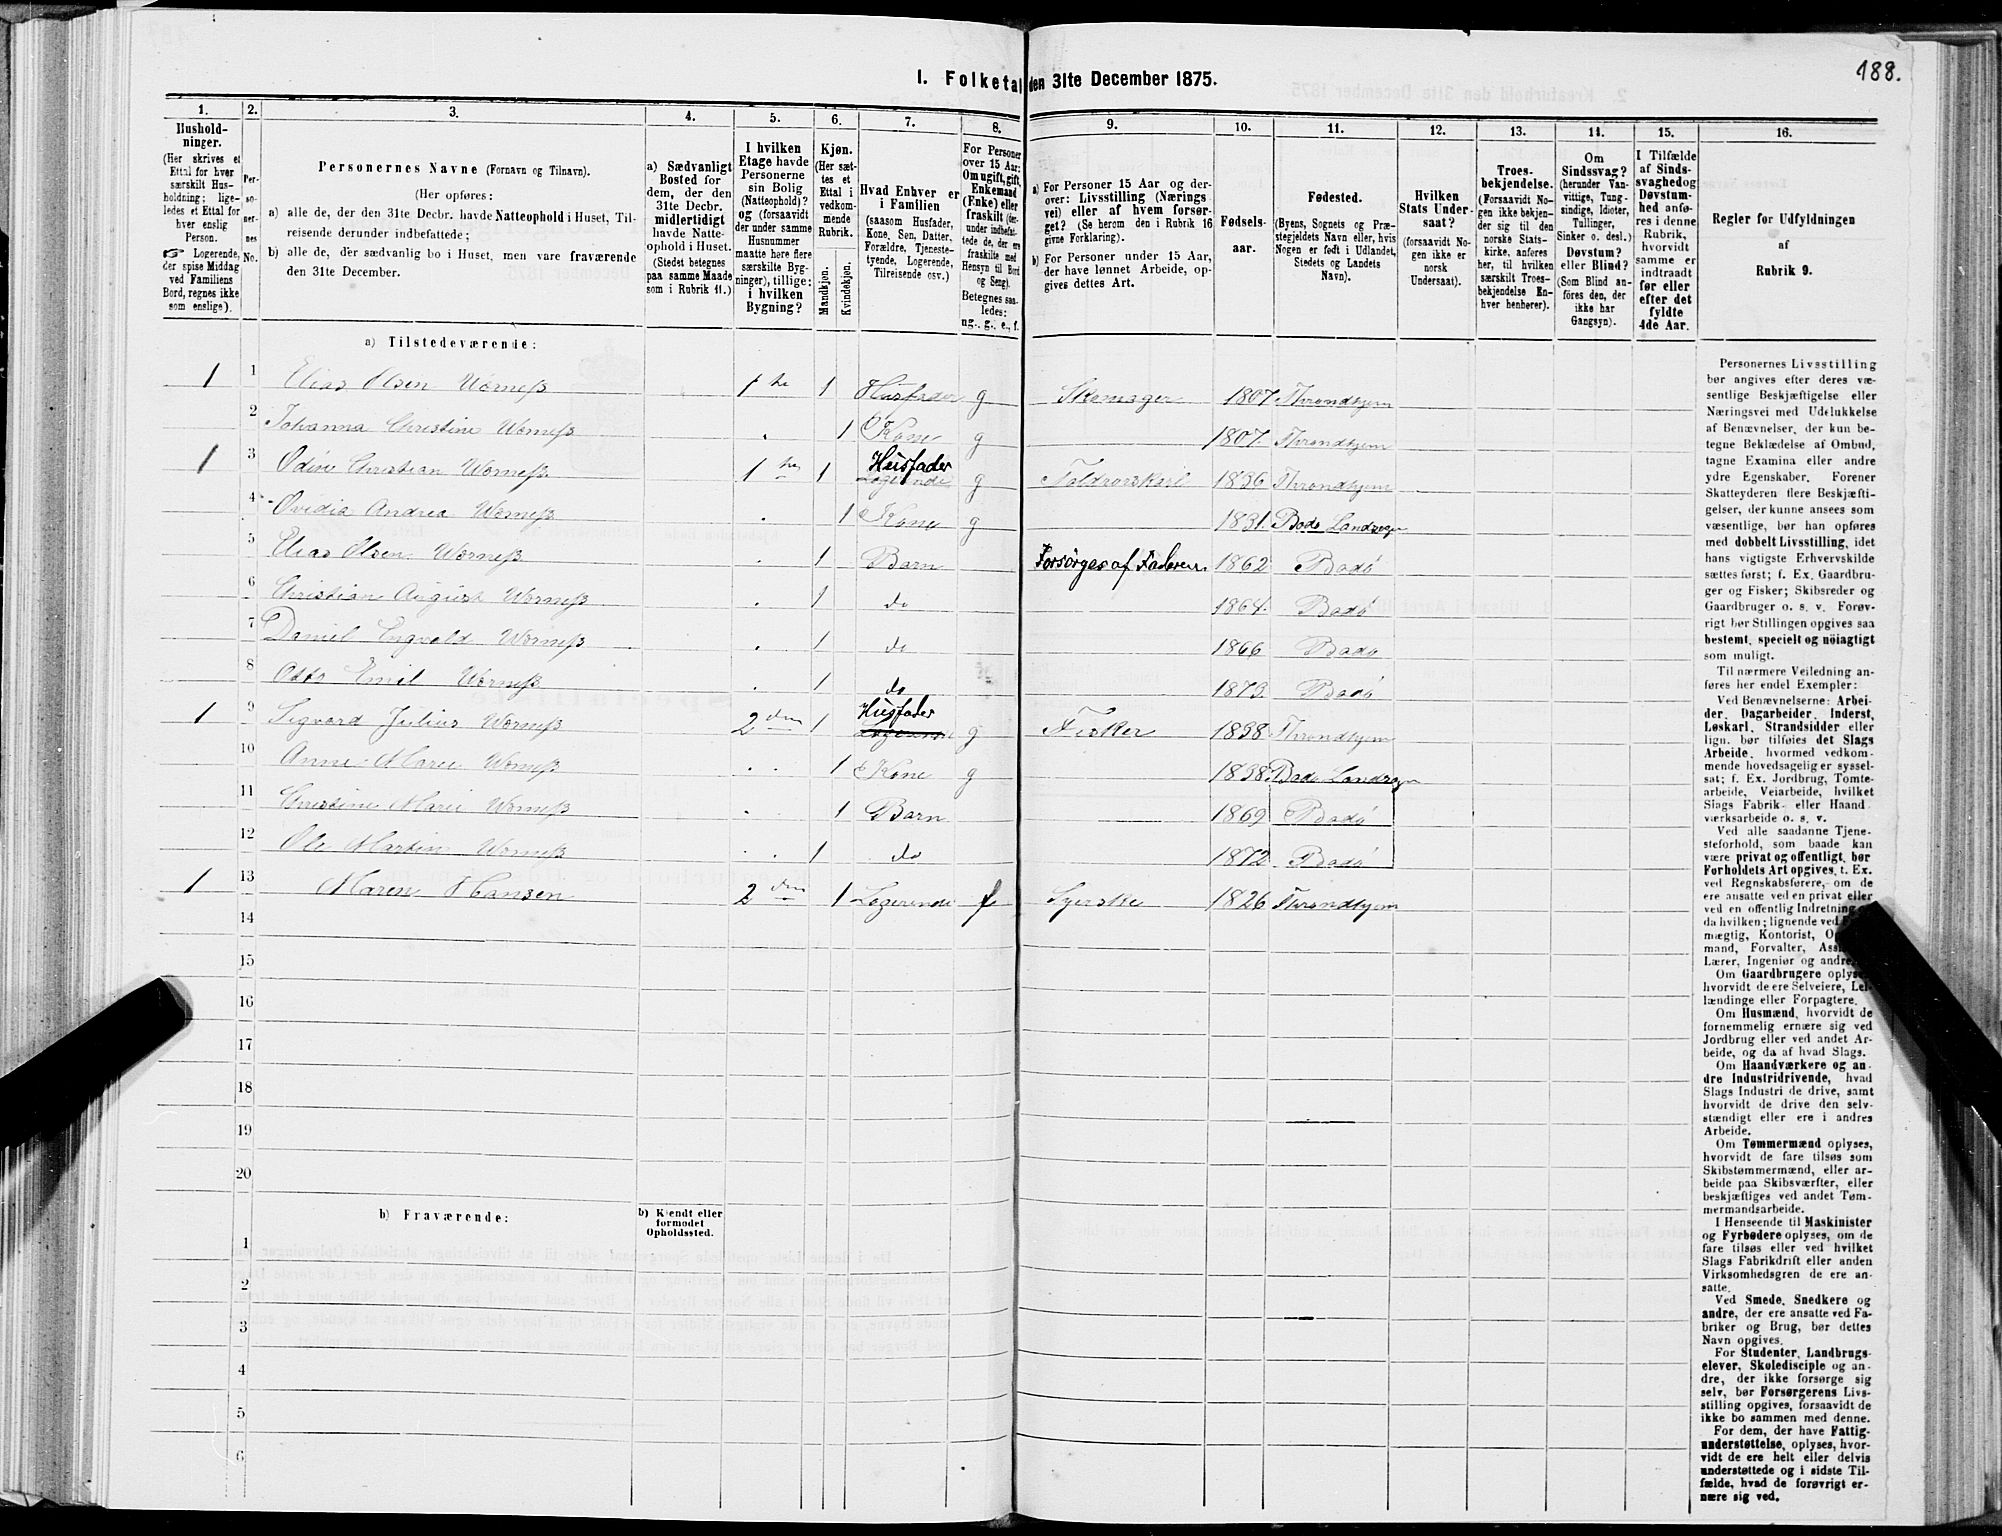 188.
I. Folketal den 31te December 1875.
1. 2. 3. 4. 5. 6. 7. 8. 9. 10. 11. 12. 13. 14. 15. 16.
Husholdninger.
(Her skrives et
Ettal for hver
særskilt Husholdning;
ligeledes et Ettal for
hver enslig
Person.
Logerende,
der spise Middag
ved Familiens
Bord, regnes ikke
som enslige).
Personernes No.
Personernes Navne (Fornavn og Tilnavn).
(Her opføres:
a) alle de, der den 31te Decbr. havde Natteophold i Huset, Tilreisende
derunder indbefattede;
b) alle de, der sædvanlig bo i Huset, men vare fraværende
den 31te December.
a) Sædvanligt
Bosted for
dem, der den
31te Decbr.
midlertidigt
havde Natteophold
i Huset.
(Stedet betegnes
paa samme Maade
som i Rubrik 11.)
I hvilken
Etage havde
Personerne
sin Bolig
(Natteophold)?
og (forsaavidt
der under samme
Husnummer
maatte høre flere
særskilte Bygninger),
tillige:
i hvilken
Bygning?
Kjøn.
(Her sættes
et
Ettal i
vedkommende
Rubrik.
Mandkjøn.
Kvindekjøn.
Hvad Enhver er
i Familien
(saasom Husfader,
Kone, Søn, Datter,
Forældre, Tjenestetyende,
Logerende,
Tilreisende osv.)
For Personer
over 15 Aar:
Om ugift, gift,
Enkemand
(Enke) eller
fraskilt (derunder
indbefattede
de, der ere
fraskilte med
Hensyn til Bord
og Seng).
Betegnes saaledes:
ug., g., e., f.
a) For Personer 15 Aar og derover:
Livsstilling (Næringsvei)
eller af hvem forsørget?
(Se herom den i Rubrik 16
givne Forklaring).
b) For Personer under 15 Aar,
der have lønnet Arbeide, opgives
dettes Art.
Fødselsaar.
Fødested.
(Byens, Sognets og Præstegjeldets
Navn eller, hvis
Nogen er født i Udlandet,
Stedets og Landets
Navn).
Hvilken
Stats Undersaat?
(forsaavidt Nogen
ikke er
norsk
Undersaat).
Troesbekjendelse.
(Forsaavidt Nogen
ikke bekjender
sig til den
norske Statskirke,
anføres
her, til hvilken
særskilt Troesbekjendelse
Enhver
henhører).
Om
Sindssvag?
(herunder Vanvittige,
Tungsindige,
Idioter,
Tullinger,
Sinker o. desl.)
Døvstum?
eller Blind?
(Som Blind anføres
den, der
ikke har
Gangsyn).
I Tilfælde
af Sindssvaghed
og
Døvstumhed
anføres
i denne
Rubrik,
hvorvidt
samme er
indtraadt
før eller
efter det
fyldte
4de Aar.
Regler for Udfyldningen
af
Rubrik 9.
a) Tilstedeværende:
1 1 Elias Olsen Wærneß 1 1 Husfader g 1807 Throndhjem
2 Johanna Christine Wærneß 1 Kone g 1807. Throndhjem
1 3 Odin Christian Wærneß 1 1 Husfader Logerende g 1836 Throndhjem
4 Ovidia Andrea Wærneß 1 Kone g 1831. Bodø Landsogn
5 Elias Olsen Wærneß 1 Barn Forsørges af Faderen 1862 Bodø
6 Christian August Wærneß 1 do 1864. Bodø
7 Daniel Engvald Wærneß 1 do 1866 Bodø
8 Otto Emil Wærneß 1 do 1873. Bodø
1 9 Sigvard Julius Wærneß 2den 1 Husfader Logerende g Fisker 1838 Throndhjem
10 Anne Marie Wærneß 1 Kone g 1838. Bodø Landsogn
11 Christine Marie Wærneß 1 Barn 1869 Bodø
12 Ole Martin Wærneß 1 do 1872 Bodø
1 13 Maren Hansen 2den 1 Logerende Syerske 1826 Throndhjem
14
15
16
17
18
19
20
b) Fraværende:
b) Kjendt eller
formodet
Opholdssted.
1
2
3
4
5
6
Personernes Livsstilling
bør angives efter deres væsentlige
Beskjæftigelse eller
Næringsvei med Udelukkelse
af Benævnelser, der kun betegne
Beklædelse af Ombud,
tagne Examina eller andre
ydre Egenskaber. Forener
Skatteyderen flere Beskjæftigelser,
der kunne ansees som
væsentlige, bør han opføres
med dobbelt Livsstilling, idet
hans vigtigste Erhvervskilde
sættes først; f. Ex. Gaardbruger
og Fisker; Skibsreder og
Gaardbruger o. s. v. Forøvrigt
bør Stillingen opgives saa
bestemt, specielt og nöiagtigt
som muligt.
Til nærmere Veiledning anføres
her endel Exempler:
Ved Benævnelserne: Arbeider,
Dagarbeider, Inderst,
Løskarl, Strandsidder eller
lign. bør tilføies det Slags
Arbeide, hvormed vedkommende
hovedsagelig er sysselsat;
f. Ex. Jordbrug, Tomtearbeide,
Veiarbeide, hvilket
Slags Fabrik- eller Haandværksarbeide
o. s. v.
Ved alle saadanne Tjenesteforhold,
som baade kan
være privat og offentligt, bør
Forholdets Art opgives, t. Ex.
ved Regnskabsførere, om de
ere ansatte ved en privat eller
ved en offentlig Indretning
da hvilken; lignende ved
mægtig, Kontorist,
mand, Forvalter,
Lærer, Ingeniør og andre
Om Gaardbrugere oplyses,
hvorvidt de ere Selveiere, Leilændinge
eller Forpagtere.
Om Husmænd, hvorvidt de
fornemmelig ernære sig ved
Jordbrug eller ved andet Arbeide,
og da af hvad Slags.
Om Haandværkere og andre
Industridrivende, hvad
Slags Industri de drive, samt
hvorvidt de drive den selvstændigt
eller ere i andres
Arbeide.
Om Tømmermænd oplyses,
hvorvidt de fare tilsøs som
Skibstømmermænd, eller arbeide
paa Skibsværfter, eller
beskjæftiges ved andet Tømmermandsarbeide.
I Henseende til Maskinister
og Fyrbødere oplyses, om de
fare tilsøs eller ved hvilket
Slags Fabrikdrift eller anden
Virksomhedsgren de ere ansatte.
Ved Smede, Snedkere og
andre, der ere ansatte ved Fabriker
og Brug, bør dettes
Navn opgives.
For Studenter, Landbrugselever,
Skoledisciple og andre,
der ikke forsørge sig
selv, bør Forsørgerens Livsstilling
opgives, forsaavidt de
ikke bo sammen med denne.
For dem, der have Fattigunderstøttelse,
oplyses, hvorvidt
de ere helt eller delvis
understøttede og i sidste Tilfælde,
hvad de forøvrigt ernære
sig ved.